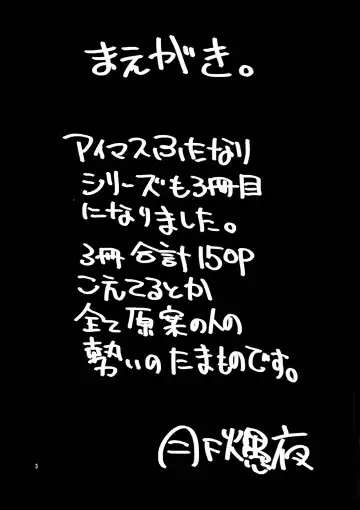 まえがき。
アイマスふたなり
シリーズも3冊目
になりました。
3冊合計150P
こえてるとか
全て原案の人の
勢いのたまものです。
月下爆夜
3